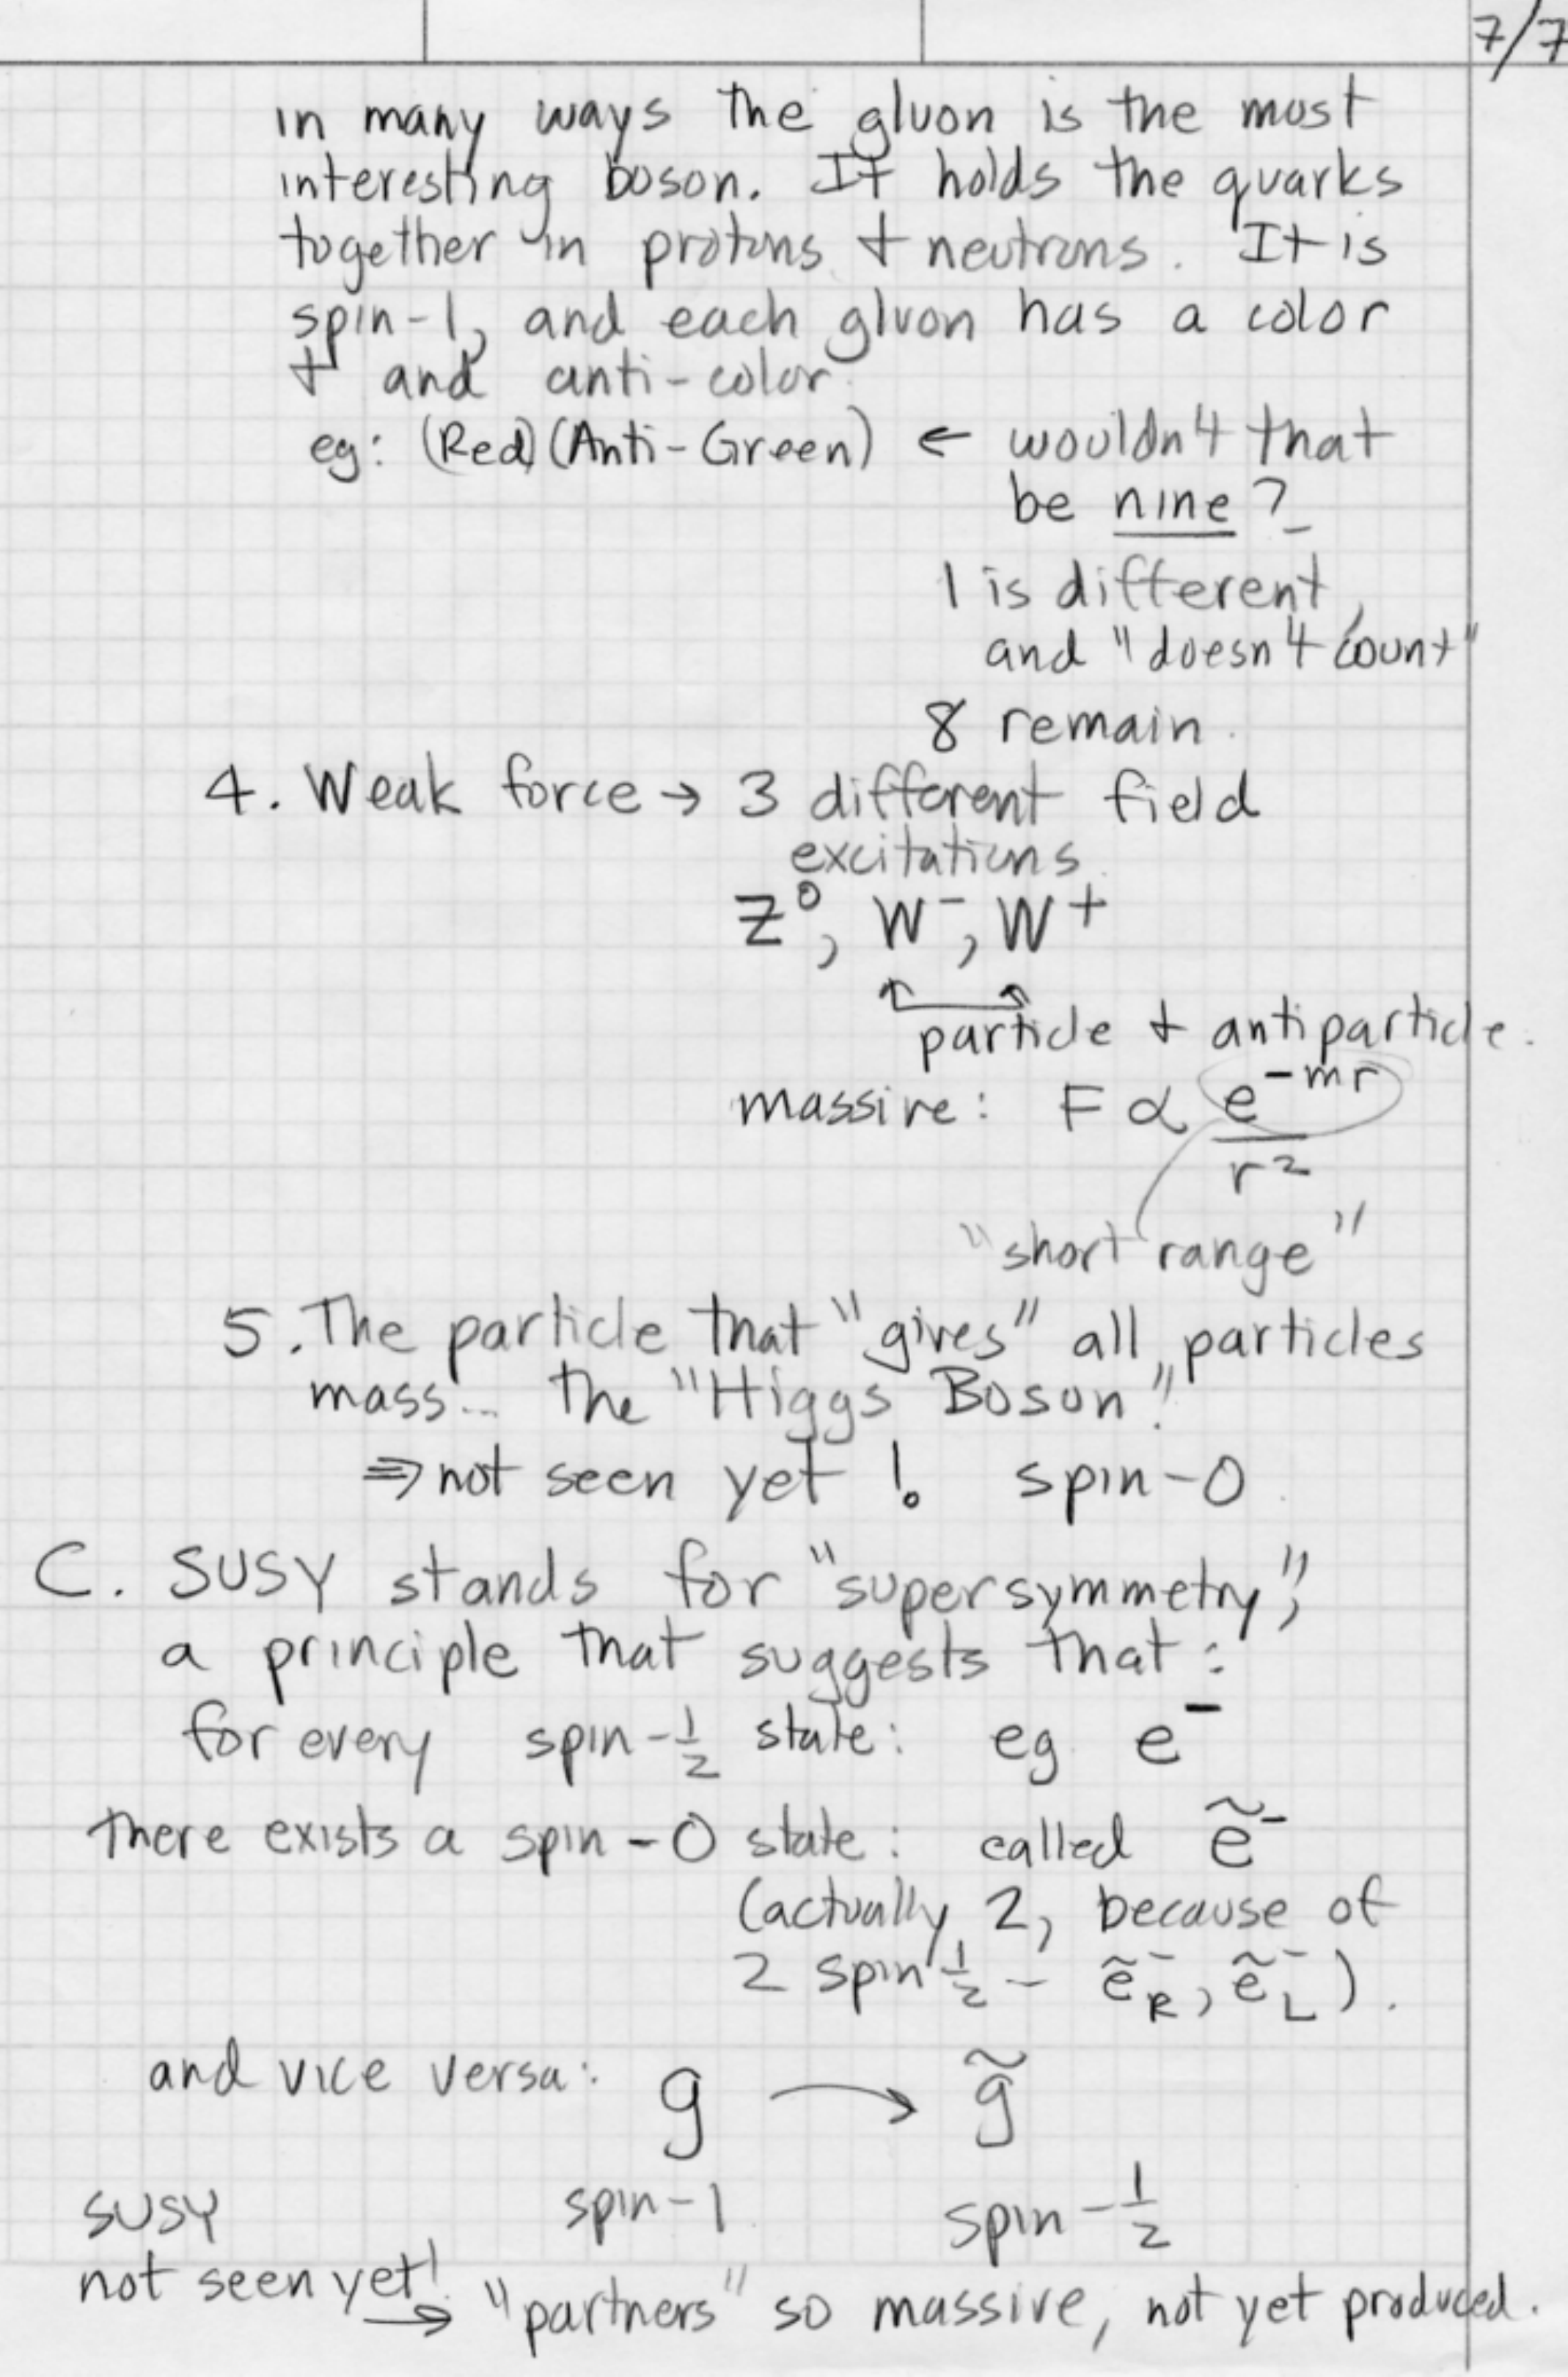 7/7
in many ways the gluon is the most
interesting boson. It holds the quarks
together in protons + neutrons. It is
spin-1, and each gluon has a color
+ and anti-color.
eg: (Red)(Anti-Green) ← wouldn't that
be nine?
1 is different,
and "doesn't count"
8 remain.
4. Weak force → 3 different field
excitations
Z⁰, W⁻, W⁺
particle + antiparticle.
massive: F ∝ e^{-mr}/r²
"short range"
5. The particle that "gives" all particles
mass... the "Higgs Boson"!
⇒ not seen yet! spin-0
C. SUSY stands for "supersymmetry",
a principle that suggests that:
for every spin-1/2 state: eg e⁻
there exists a spin-0 state: called ẽ⁻
(actually 2, because of
2 spin 1/2 - ẽ⁻_R, ẽ⁻_L).
and vice versa: g → g̃
spin-1 spin-1/2
SUSY
not seen yet!
→ "partners" so massive, not yet produced.